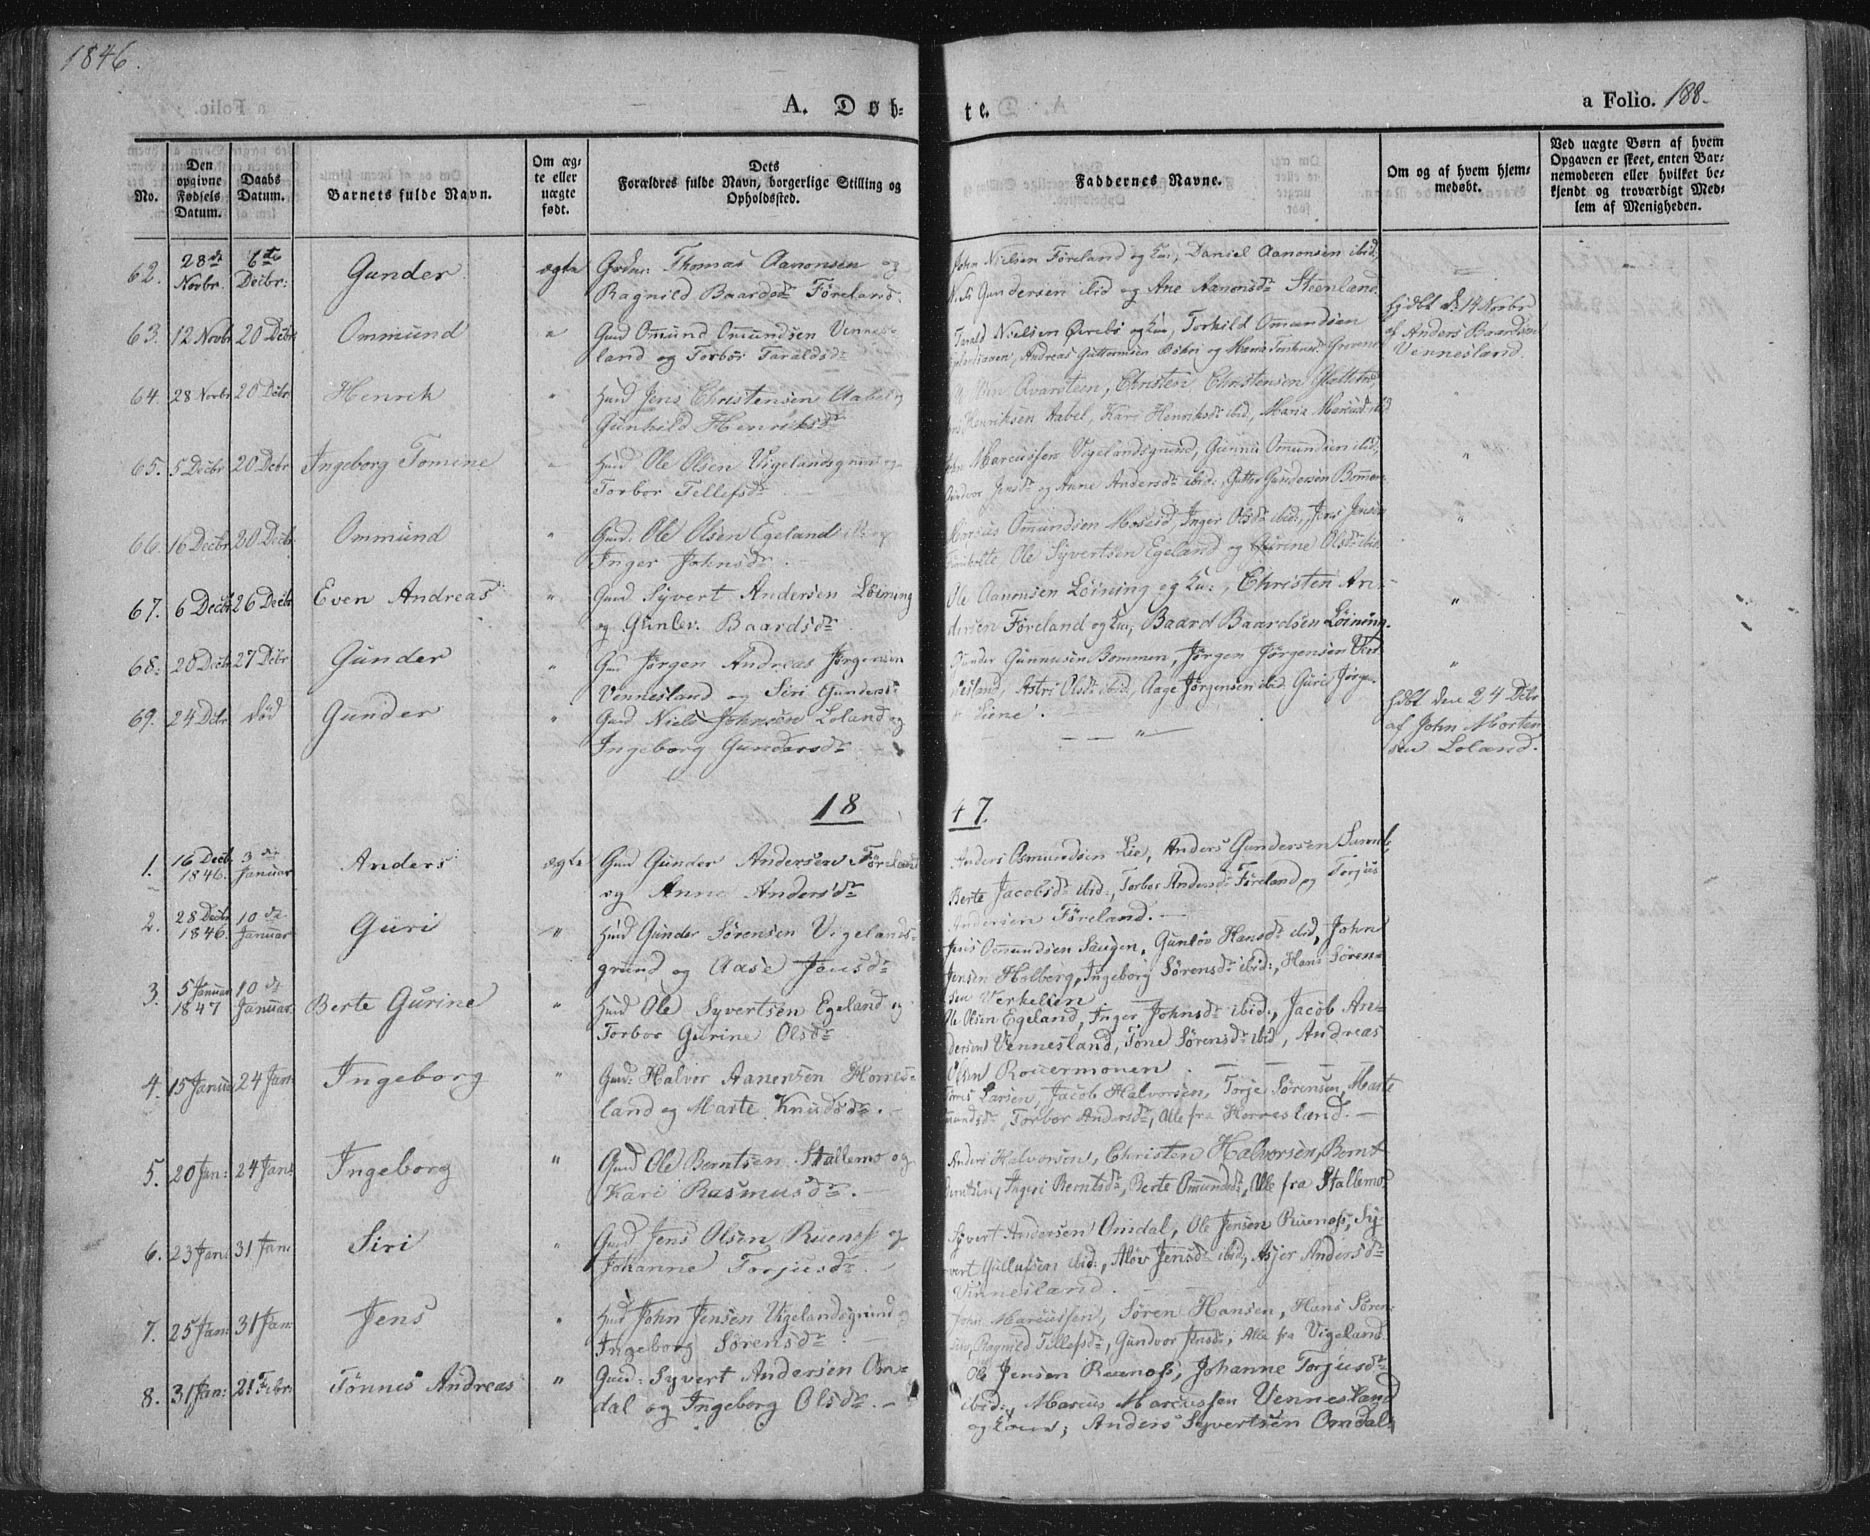 1846.
A. Døb-
te.
a Folio. 188.
No.
Den opgivne Fødsels Datum.
Daabs Datum.
Barnets fulde Navn.
Om ægte eller uægte født.
Dets Forældres fulde Navn, borgerlige Stilling og Opholdssted.
Faddernes Navne.
Om og af hvem hjemmedøbt.
Ved uægte Børn af hvem Opgaven er skeet, enten Barnemoderen eller hvilket bekjendt og troværdigt Medlem af Menigheden.
62. 28de Novbr. 6te Decbr: Gunder ægte Thomas Aanonsen og
Ragnild Baardsdr Föreland.
John Nielsen Föreland og Kue, Daniel Aanonsen ibid,
Gundersen ibid og Ane Aanonsdr Steenland.
63. 12 Novbr 20 Decbr Ommund " Gmd Omund Omundsen Vennes-
land og Torbor Taraldsdr
Tarald Nielsen Örebö og Kue, Torkild Omundsen
Andreas Guttormsen og Maria
hjdbt d. 14 Novbr
af Anders Baardsen
Vennesland.
64. 28 Novbr 20 Decbr Henrik " Hmd Jens Christensen Aabel og
Gunhild Henriksdr
Qvarsteen, Christen Christensen
Henriksen Aabel, Kari Henriksdr ibid, Maria Marcusdr ibid
65. 5 Decbr 20 Decbr Ingeborg Tomine " Hmd Ole Olsen Vigelandsgrund og
Torbor Tellefsdr
Marcussen Vigelandsgrund, Gunnu Omundsen ibid,
Gundvor Jensdr og Anne Andersdr ibid, Gutter Gundersen Bommen
66. 16 Decbr 20 Decbr Ommund " Gmd. Ole Olsen Egeland og
Inger Johnsdr
Marcus Omundsen Moseid, Inger Olsdr ibid, Jens Jensen
Ole Syvertsen Egeland og Gurine Olsdr ibid
67. 6 Decbr 26 Decbr Even Andreas " Gmd Syvert Andersen Löining
og Gunlev. Baardsdr
Ole Aanonsen Löining og Kue, Christen An-
dersen Föreland og Kue, Baard Baardsen Löining.
68. 20 Decbr 27 Decbr Gunder " Gmd Jörgen Andreas Jörgensen
Vennesland og Siri Gundersdr
Gunder Gunnusen Bommen, Jörgen Jörgensen Ven-
nesland, Astri Olsdr ibid, Aage Jörgensen ibid Guri Jörgen-
69. 24 Decbr død Gunder " Gmd Niels Johnsen Loland og
Ingeborg Gundersdr
hdbt den 24 Decbr
af John Morten-
sen Loland.
18
47.
1. 16 Decb. 1846. 3die Januar Anders ægte Gmd Gunder Andersen Föreland
og Anne Andersdr
Anders Osmundsen Lie, Anders Gundersen
Berte Jacobsdr ibid, Torbor Andersdr Föreland og Torjus
Andersen Föreland.
2. 28 Decbr 1846. 10de Januar Guri " Hmd Gunder Sörensen Vigelands-
grund og Aase Jensdr
Jens Omundsen Saugen, Gunlöv Hansdr ibid, John
Jensen Holberg, Ingeborg Sörensdr ibid, Hans Sören-
sen Verkelien
3. 5 Januar 1847 10de Januar Berte Gurine " Hmd Ole Syvertsen Egeland og
Torbor Gurine Olsdr
Ole Olsen Egeland, Inger Johnsdr ibid., Jacob An-
dersen Vennesland, Tone Sörensdr ibid, Andreas
Olsen Rouermonen.
4. 15 Januar 24 Jan: Ingeborg " Gmd: Halvor Aanensen Horres-
land og Marte Knudsdr.
Larsen, Jacob Halvorsen, Torje Sörensen, Marte
Torbor Andersdr, Alle fra Horresland.
5. 20 Jan: 24 Jan: Ingeborg " Gmd Ole Berntsen Stallemo og
Kari Rasmusdr.
Anders Halvorsen, Christen Halvorsen, Bernt
Berntsen, Ingeri Berntsdr, Berte Omundsdr, Alle fra Stallemo
6. 23 Jan: 31 Jan: Siri " Gmd Jens Olsen Ruenæss og
Johanne Torjusdr.
Syvert Andersen Omdal, Ole Jensen Ruenæss, Sy-
vert Gullufsen ibid., Alöv Jensdr ibid, Asjer Andersdr
Vinnesland.
7. 25 Jan: 31 Jan: Jens " Hmd John Jensen Vigelandsgrund og
Ingeborg Sörensdr
John Marcussen, Sören Hansen, Hans Sören-
sen, Ragnild Tellefsdr, Gundvor Jensdr, Alle fra Vigeland.
8. 31 Jan: 21 Febr: Tönnes Andreas " Gmd: Syvert Andersen Om-
dal og Ingeborg Olsdr.
Ole Jensen Ruenæss, Johanne Torjusdr
ibid:, Marcus Marcussen Vennesland
og Kone; Anders Syvertsen Omdal.